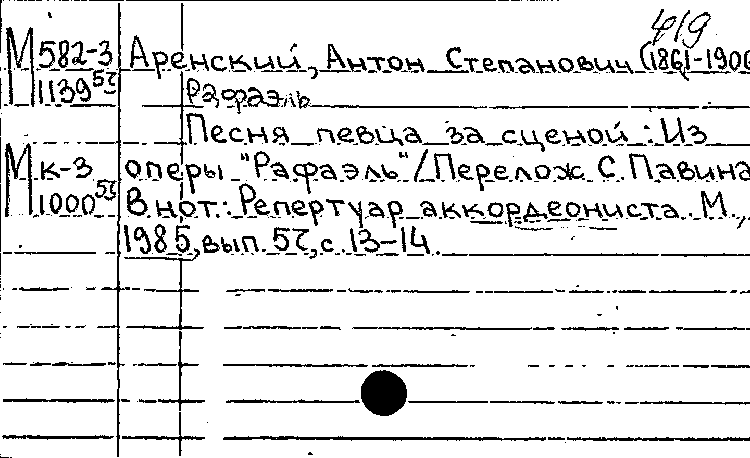 419
М 582-3 Аренский, Антон Степанович (1861-1906
1139 57
Рафаэль
Песня певца за сценой: Из
М к-3 оперы "Рафаэль"/Перелож С. Павина
1000 57 В нот.: Репертуар аккордеониста. М.,
1985, вып. 57, с. 13-14.